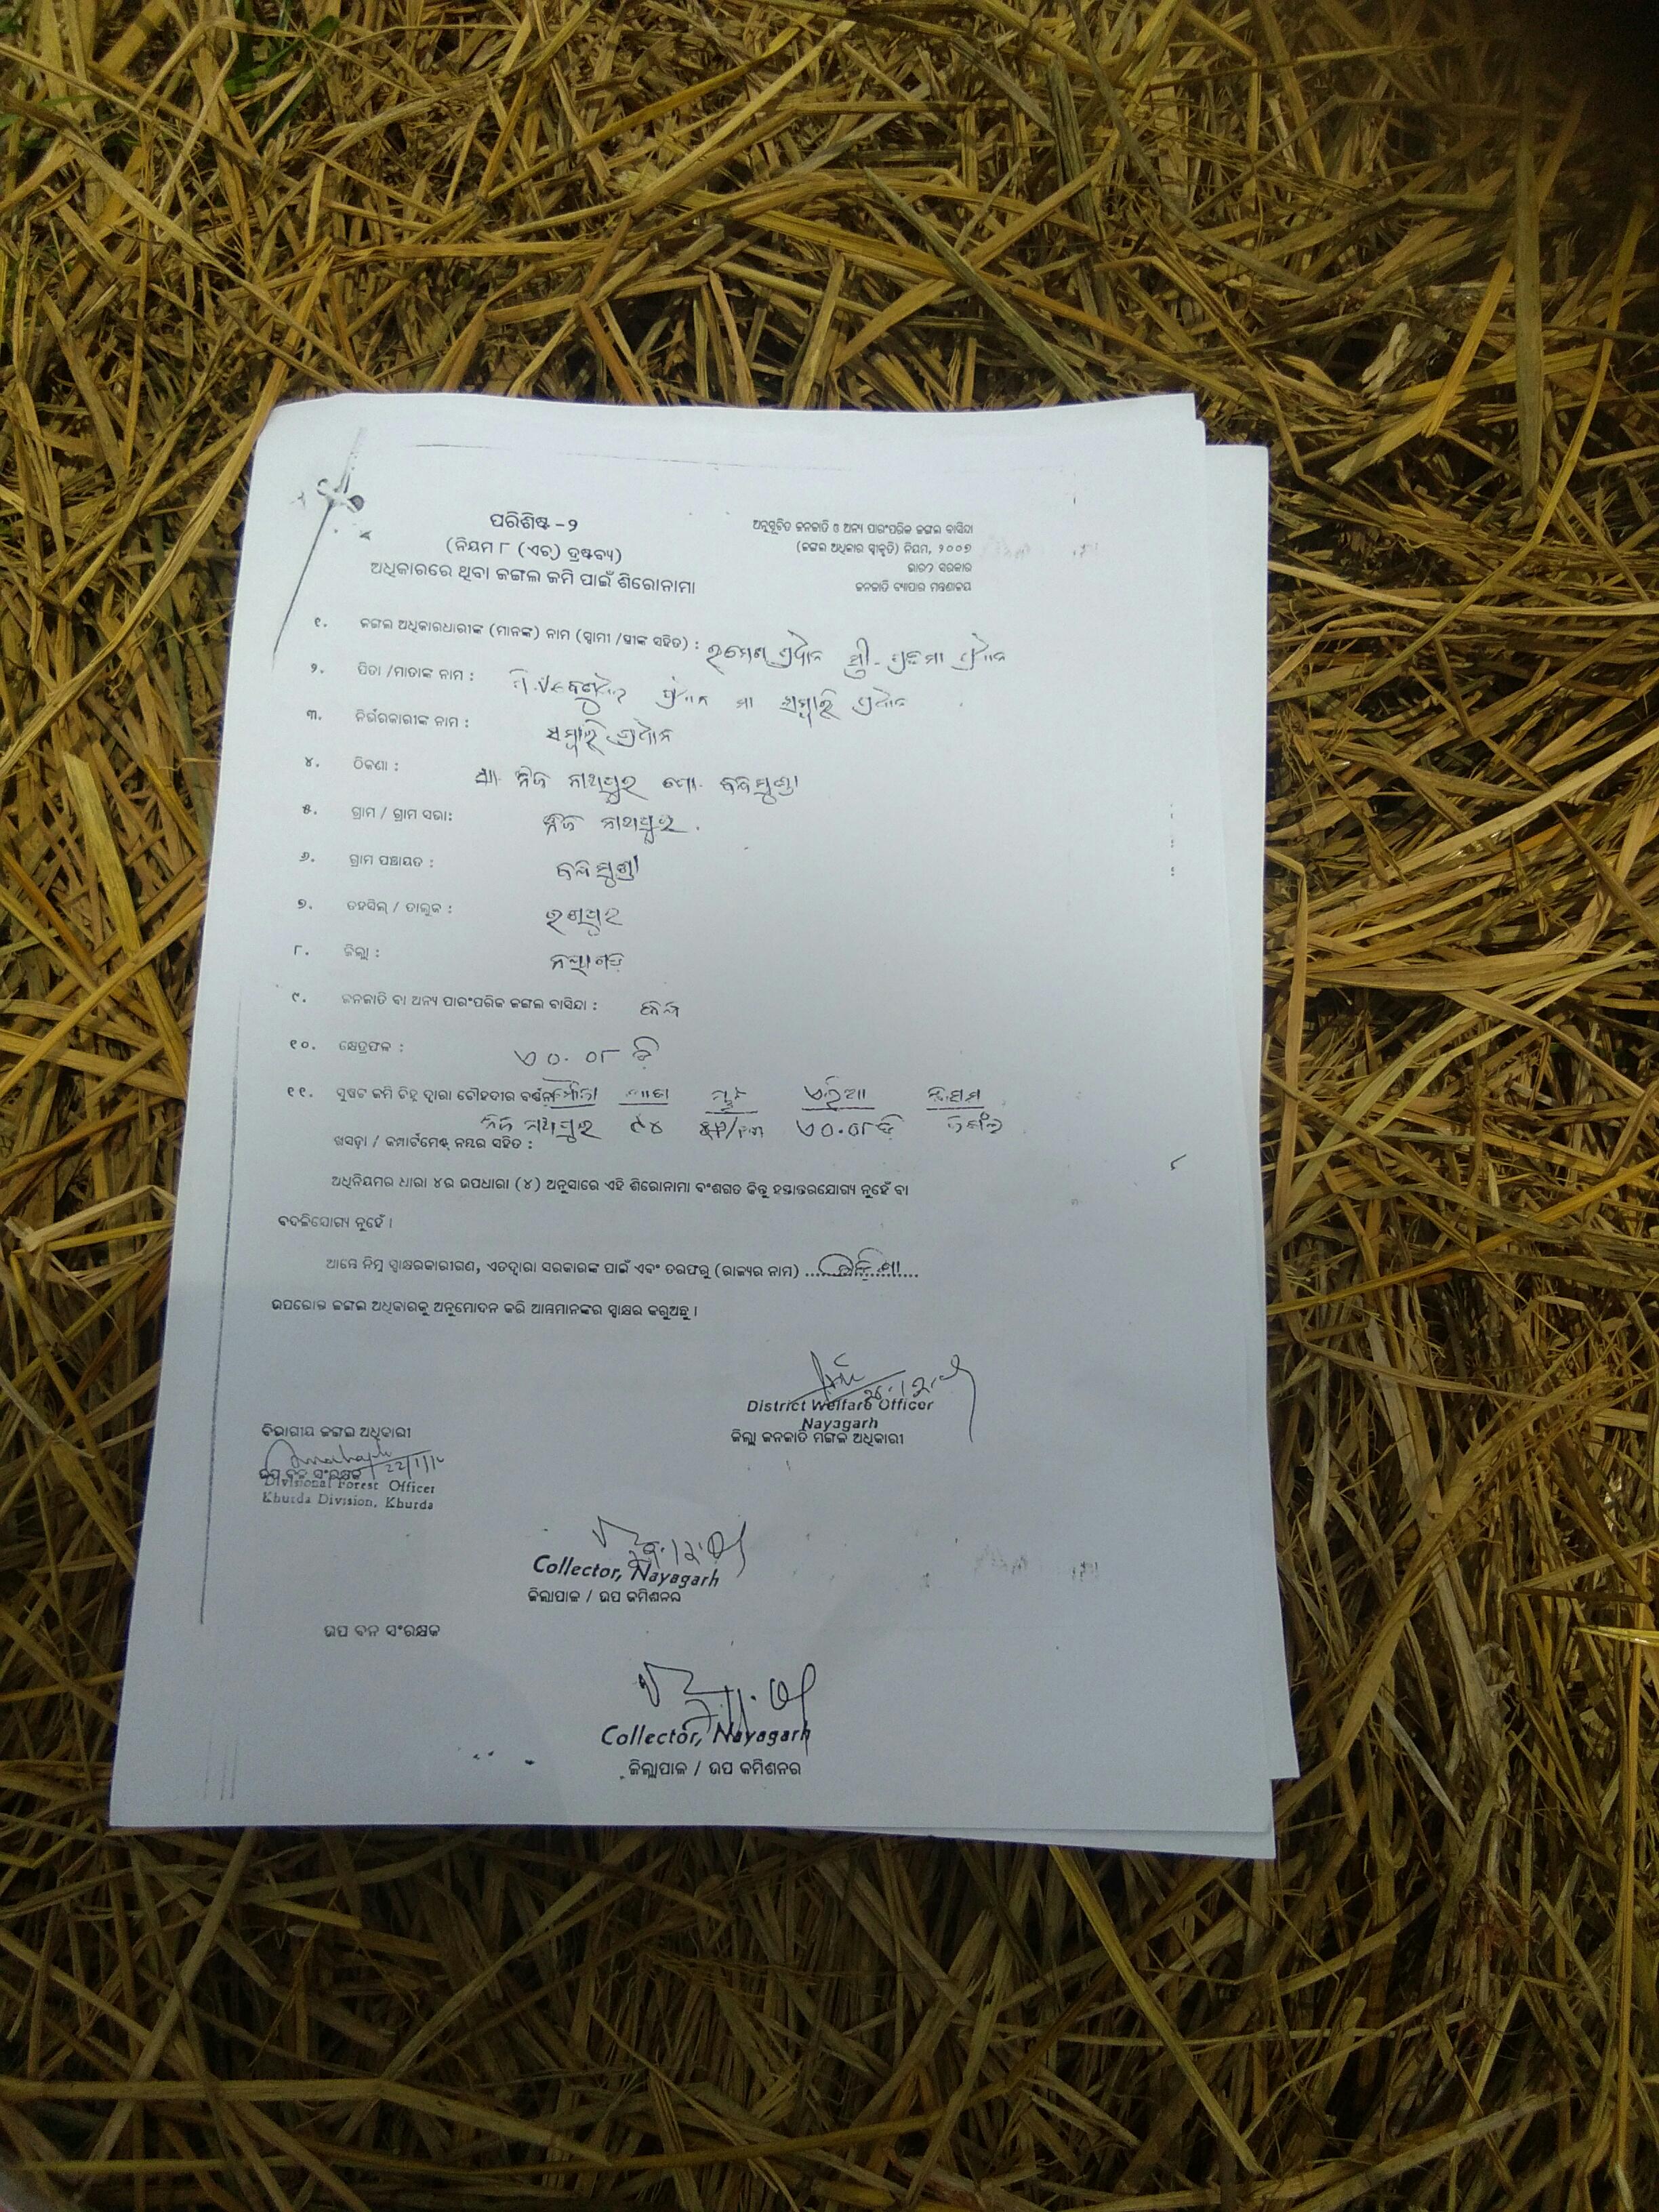 ପରିଶିଷ୍ଟ -୨
(ନିୟମ ୮ (ଏଚ୍) ଦ୍ରଷ୍ଟବ୍ୟ)
ଅଧିକାରରେ ଥିବା ଜଙ୍ଗଲ ଜମି ପାଇଁ ଶିରୋନାମା
ଅନୁସୂଚିତ ଜନଜାତି ଓ ଅନ୍ୟ ପାରଂପରିକ ଜଙ୍ଗଲ ବାସିନ୍ଦା
(ଜଙ୍ଗଲ ଅଧିକାର ସ୍ୱୀକୃତି) ନିୟମ, ୨୦୦୭
ଭାରତ ସରକାର
ଜନଜାତି ବ୍ୟାପାର ମନ୍ତ୍ରଣାଳୟ
୧. ଜଙ୍ଗଲ ଅଧିକାରଧାରୀଙ୍କ (ମାନଙ୍କ) ନାମ (ସ୍ୱାମୀ /ସ୍ତ୍ରୀଙ୍କ ସହିତ) : ରମେଶ ପ୍ରଧାନ ସ୍ତ୍ରୀ- ପ୍ରଧାନ
୨. ପିତା /ମାତାଙ୍କ ନାମ : ପ୍ରଧାନ ମା ସମ୍ବାରି ପ୍ରଧାନ
୩. ନିର୍ଭରକାରୀଙ୍କ ନାମ : ସମ୍ବାରି ପ୍ରଧାନ
୪. ଠିକଣା : ସା. ନିଜ ନାଥପୁର ପୋ.
୫. ଗ୍ରାମ / ଗ୍ରାମ ସଭା: ନିଜ ନାଥପୁର.
୬. ଗ୍ରାମ ପଞ୍ଚାୟତ :
୭. ତହସିଲ୍ / ତାଲୁକ : ରଣପୁର
୮. ଜିଲ୍ଲା : ନୟାଗଡ଼
୯. ଜନଜାତି ବା ଅନ୍ୟ ପାରଂପରିକ ଜଙ୍ଗଲ ବାସିନ୍ଦା : କନ୍ଧ
୧୦. କ୍ଷେତ୍ରଫଳ : ଏ ୦.୦୮ ଡି
୧୧. ସ୍ପଷ୍ଟ ଜମି ଚିହ୍ନ ଦ୍ୱାରା ଚୌହଦୀର ବର୍ଣ୍ଣନା ମୌଜା ଖାତା ପ୍ଲଟ ଏରିଆ କିସମ
ନିଜ ନାଥପୁର ୯୪ ଏ୦.୦୮ଡି ଜଙ୍ଗଲ
ଖସଡ଼ା / କମ୍ପାର୍ଟମେଣ୍ଟ ନମ୍ବର ସହିତ :
ଅଧିନିୟମର ଧାରା ୪ର ଉପଧାରା (୪) ଅନୁସାରେ ଏହି ଶିରୋନାମା ବଂଶଗତ କିନ୍ତୁ ହସ୍ତାନ୍ତରଯୋଗ୍ୟ ନୁହେଁ ବା
ବଦଳିଯୋଗ୍ୟ ନୁହେଁ ।
ଆମ୍ଭେ ନିମ୍ନ ସ୍ୱାକ୍ଷରକାରୀଗଣ, ଏତଦ୍ୱାରା ସରକାରଙ୍କ ପାଇଁ ଏବଂ ତରଫରୁ (ରାଜ୍ୟର ନାମ) ଓଡ଼ିଶା
ଉପରୋକ୍ତ ଜଙ୍ଗଲ ଅଧିକାରକୁ ଅନୁମୋଦନ କରି ଆମ୍ଭମାନଙ୍କର ସ୍ୱାକ୍ଷର କରୁଅଛୁ ।
District Welfare Officer
Nayagarh
ଜିଲ୍ଲା ଜନଜାତି ମଙ୍ଗଳ ଅଧିକାରୀ
ବିଭାଗୀୟ ଜଙ୍ଗଲ ଅଧିକାରୀ
ଉପ ବନ ସଂରକ୍ଷକ
Divisional Forest Officer
Khurda Division, Khurda
Collector, Nayagarh
ଜିଲ୍ଲାପାଳ / ଉପ କମିଶନର
ଉପ ବନ ସଂରକ୍ଷକ
Collector, Nayagarh
ଜିଲ୍ଲାପାଳ / ଉପ କମିଶନର